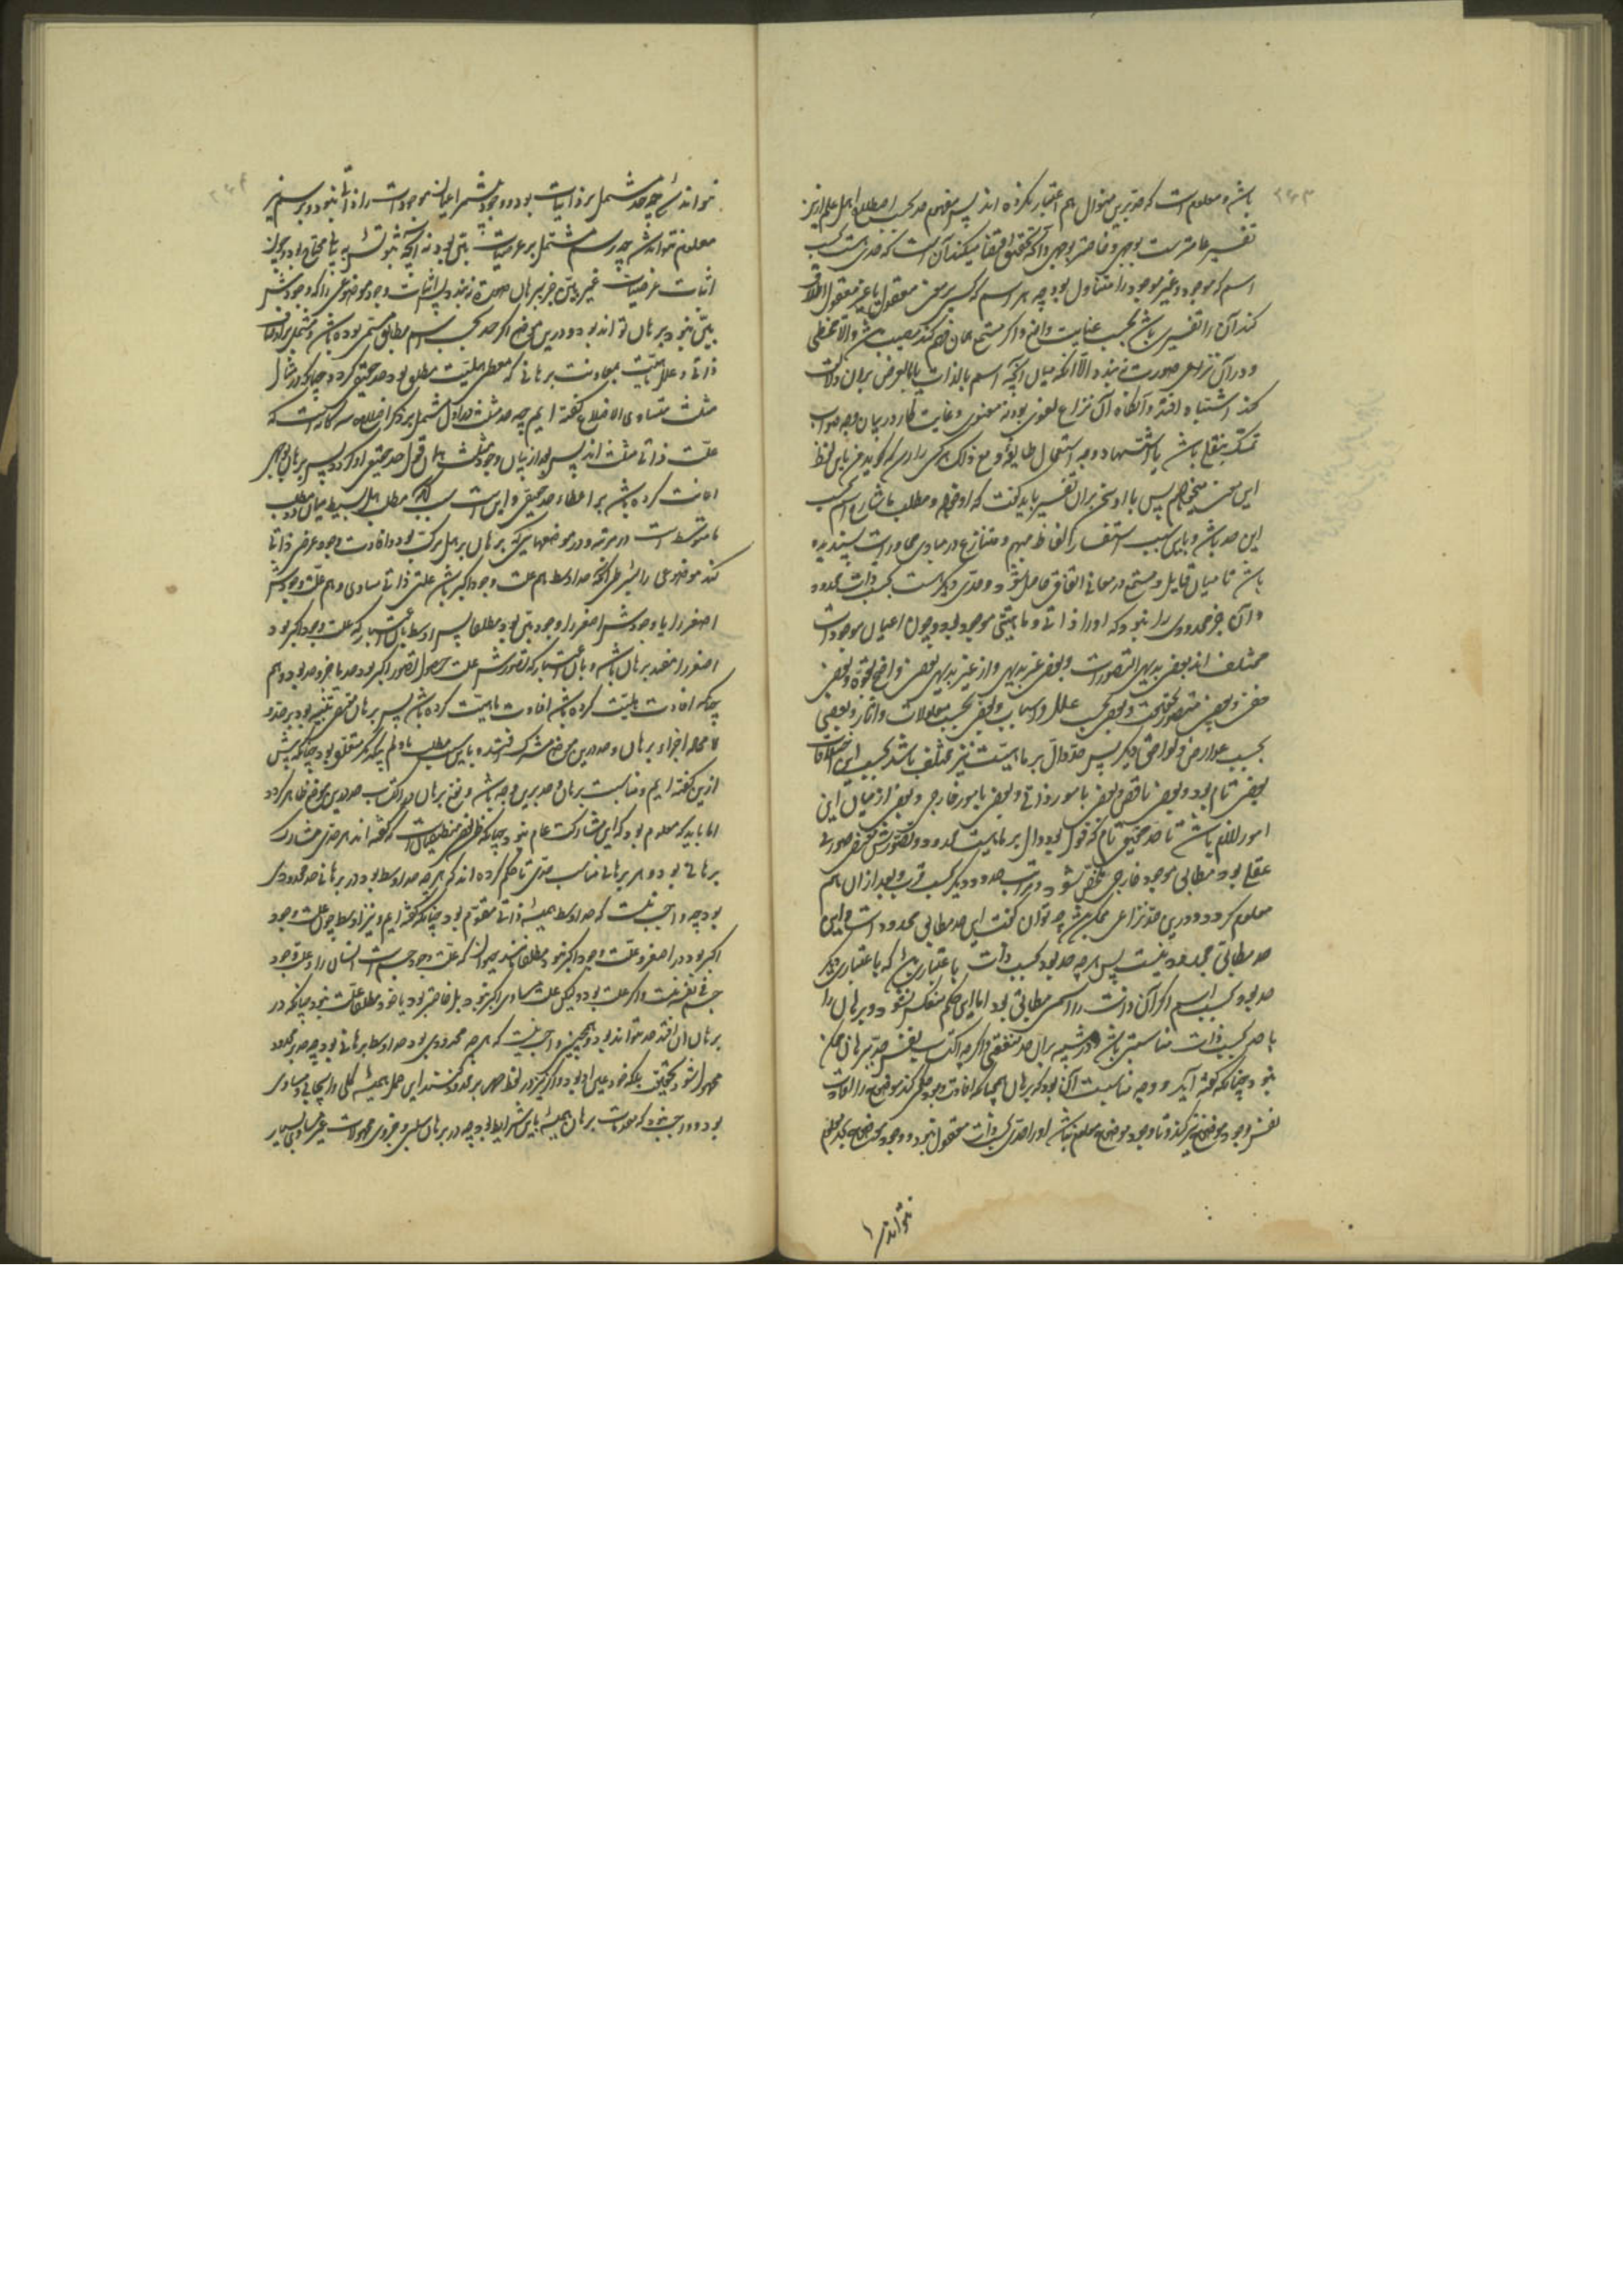 باشد و معلوم است که قدما برین منوال هم اعتبار نکرده اند پس مفهوم حد بحسب اصطلاح اهل علم ازین
تفسیر عامتر است بوجهی و خاصتر بوجهی و آنچه تحقیق اقتضا میکند آن است که حدی است بحسب
اسم که موجود و غیر موجود را متناول بود چه هر اسم که کسی بر معنی معقول یا غیر معقول اطلاق
کند آن را تفسیری باشد بحسب عنایت واضع و اگر مستمع همان فهم کند مصیب باشد و الا مخطی
و در آن نزاعی صورت نبندد الا آنکه میان آنچه اسم بالذات یا بالعرض بر آن دلالت
کند اشتباه افتد و آنگاه آن نزاع لغوی بود نه معنوی و غایت کار در بیان وجه صواب
تمسک بنقلی باشد یا استشهاد وجه استعمال طایفه و مع ذلک هر کس را رسد که گوید من باین لفظ
این معنی میخواهم پس با او سخن بر آن تفسیر باید گفت که او خواهد و مطلب ما شارح اسم بحسب
این حد باشد و باین سبب استفسار الفاظ مبهم و متنازع در مبادی محاورات پسندیده
باشد تا میان قایل و مستمع در معانی اتفاق حاصل شود و حدی دیگر است بحسب ذات محدود
و آن جز محدودی را نبود که او را ذاتی و ماهیتی موجود بود و چون اعیان موجودات
مختلف اند بعضی بدیهی التصورات و بعضی غیر بدیهی و از غیر بدیهی بعضی واضح بقوة و بعضی
خفی و بعضی متصور بحقیقت و بعضی بحسب علل و اسباب و بعضی بحسب معلولات و آثار و بعضی
بحسب عوارض و لواحق دیگر پس حدود دال بر ماهیت نیز مختلف باشد بحسب این اختلافات
بعضی تام بود و بعضی ناقص و بعضی بامور ذاتی و بعضی بامور خارجی و بعضی از میان این
امور لازم باشد تا حد حقیقی تام که قول بود دال بر ماهیت محدود و تصورش محض صورتی
عقلی بود مطابق موجود خارجی مخصوص شود و مراتب حدود دیگر بحسب قرب و بعد از آن هم
معلوم گردد و درین حد نزاعی ممکن باشد چه توان گفت این حد مطابق محدود است و این
حد مطابق محدود نیست پس هر چه حد بود بحسب ذات باعتباری باشد که باعتباری دیگر
حد بود بحسب اسم اگر آن ذات را اسمی مطابق بود اما این حکم منعکس نشود و برهان را
با حد بحسب ذات مناسبتی باشد و در شبیه بر آن حد منفعتی و اگر چه اکتساب نفس حد ببرهان ممکن
نبود چنانکه گفته آید و وجه مناسبت آن بود که برهان همچنانکه افادت وجود حملی کند موضوع را افادت
نفس وجود موضوع نیز کند و تا وجود موضوع معلوم نباشد او را حدی بحسب ذات معقول نبود و وجود موضوع بحد معلوم
نتواند شد
نتواند شد چه حد مشتمل بر ذاتیات بود و وجود بیشتر اعیان موجودات را ذاتی نبود و برسم نیز
معلوم نتواند شد چه رسم مشتمل بر عرضیات بین بود نه آنچه ثبوتش ببیانی محتاج بود و چون
اثبات عرضیات غیر بین جز ببرهان صورت نبندد پس اثبات وجود موضوعی را که وجودش
بین نبود ببرهان تواند بود و درین موضع اگر حد بحسب اسم مطابق مسمی بوده باشد و مشتمل بر اوصاف
ذاتی و علل ماهیت بمعاونت برهانی که معطی هلیت مطلق بود حد حقیقی گردد چنانکه در مثال
مثلث متساوی الاضلاع گفته ایم چه حد مثلث در اول مشتمل بر ذکر اضلاع سه گانه است که
علت ذاتی مثلث اند پس بعد از بیان وجود مثلث همان قول حد حقیقی او گردد پس برهان بوجهی
اعانت کرده باشد بر اعطاء حد حقیقی و این است سبب آنکه مطلب هل بسیط میان دو مطلب
ما متوسط است در مرتبه و در موضعهایی که برهان بر هل مرکب بود و افادت وجود عرض ذاتی
کند موضوعی را بشرطی آنکه حد اوسط هم علت وجود اکبر باشد علتی ذاتی مساوی و هم علت وجودش
اصغر را یا وجودش اصغر را وجود بین بود مطلقا پس اوسط باین اعتبار که علت وجود اکبر بود
اصغر را مفید برهان باشد و باین اعتبار که تصورش علت حصول تصور اکبر بود حد یا جزو حد بود و هم
چنانکه افادت هلیت کرده باشد افادت ماهیت کرده باشد پس برهان مقتضی تنبیه بود بر حد و
لا محاله اجزاء برهان و حد درین موضع مشترک افتد و باین سبب مطلب ما و لم بیکدیگر متعلق بود چنانکه پیش
ازین گفته ایم و مناسبت برهان و حد برین وجه باشد و نفع برهان در اکتساب حد درین موضع ظاهر گردد
اما باید که معلوم بود که این مشارکت عام نبود چنانکه ظن بعضی منطقیان است که گفته اند هر حدی مشارک
برهانی بود و هر برهانی مناسب حدی تا حکم کرده اند که هر چه حد اوسط بود در برهانی حد محدودی
بود چه واجب نیست که حد اوسط همیشه ذاتی مقوم بود چنانکه گفته ایم و نیز اوسط چون علت وجود
اکبر بود در اصغر و علت وجود اکبر نبود مطلقا مانند حیوان که علت وجود جسم است انسان را و علت وجود
جسم فی نفسه نیست و اگر علت بود ولیکن علت مساوی اکبر نبود بل خاصتر بود یا خود مطلقا علت نبود چنانکه در
برهان ان افتد حد نتواند بود و همچنین واجب نیست که هر چه محدودی بود حد اوسط برهانی بود چه حد بر محدود
محمول نشود بحقیقت بلکه خود عین او بود و اگر نیز در لفظ حمل بر محدود کنند این حمل همیشه کلی و ایجابی و مساوی
بود و واجب نبود که مقدمات برهان همیشه باین شرایط بود چه در برهان سلبی و جزوی و محمولات غیر مساوی بسیار